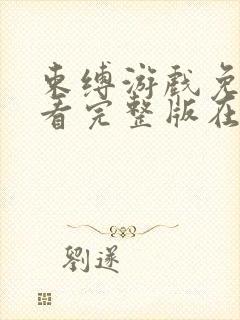 束缚游戏免
看完整版在
劉遂